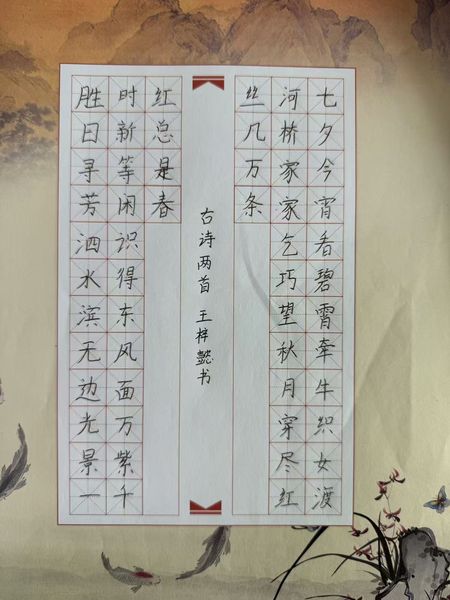 七夕今宵看碧霄牵牛织女渡
河桥家家乞巧望秋月穿尽红
丝几万条
古诗两首 王梓懿书
红总是春
时新等闲识得东风面万紫千
胜日寻芳泗水滨无边光景一